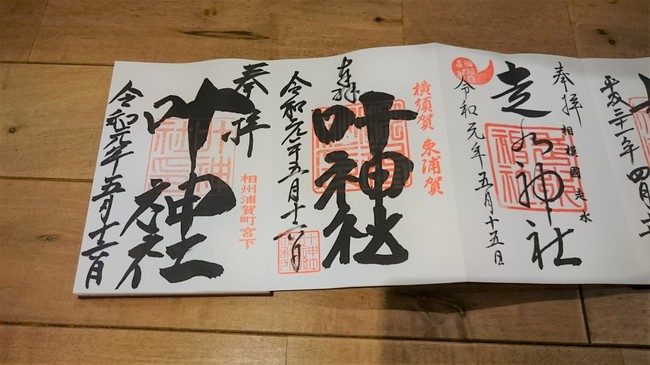 平成三十一年四月
奉拝
相模國走水
走水神社
令和元年五月十五日
横須賀 東浦賀
奉拝
叶神社
令和元年五月十六日
奉拝
相州浦賀町宮下
叶神社
令和元年五月十六日